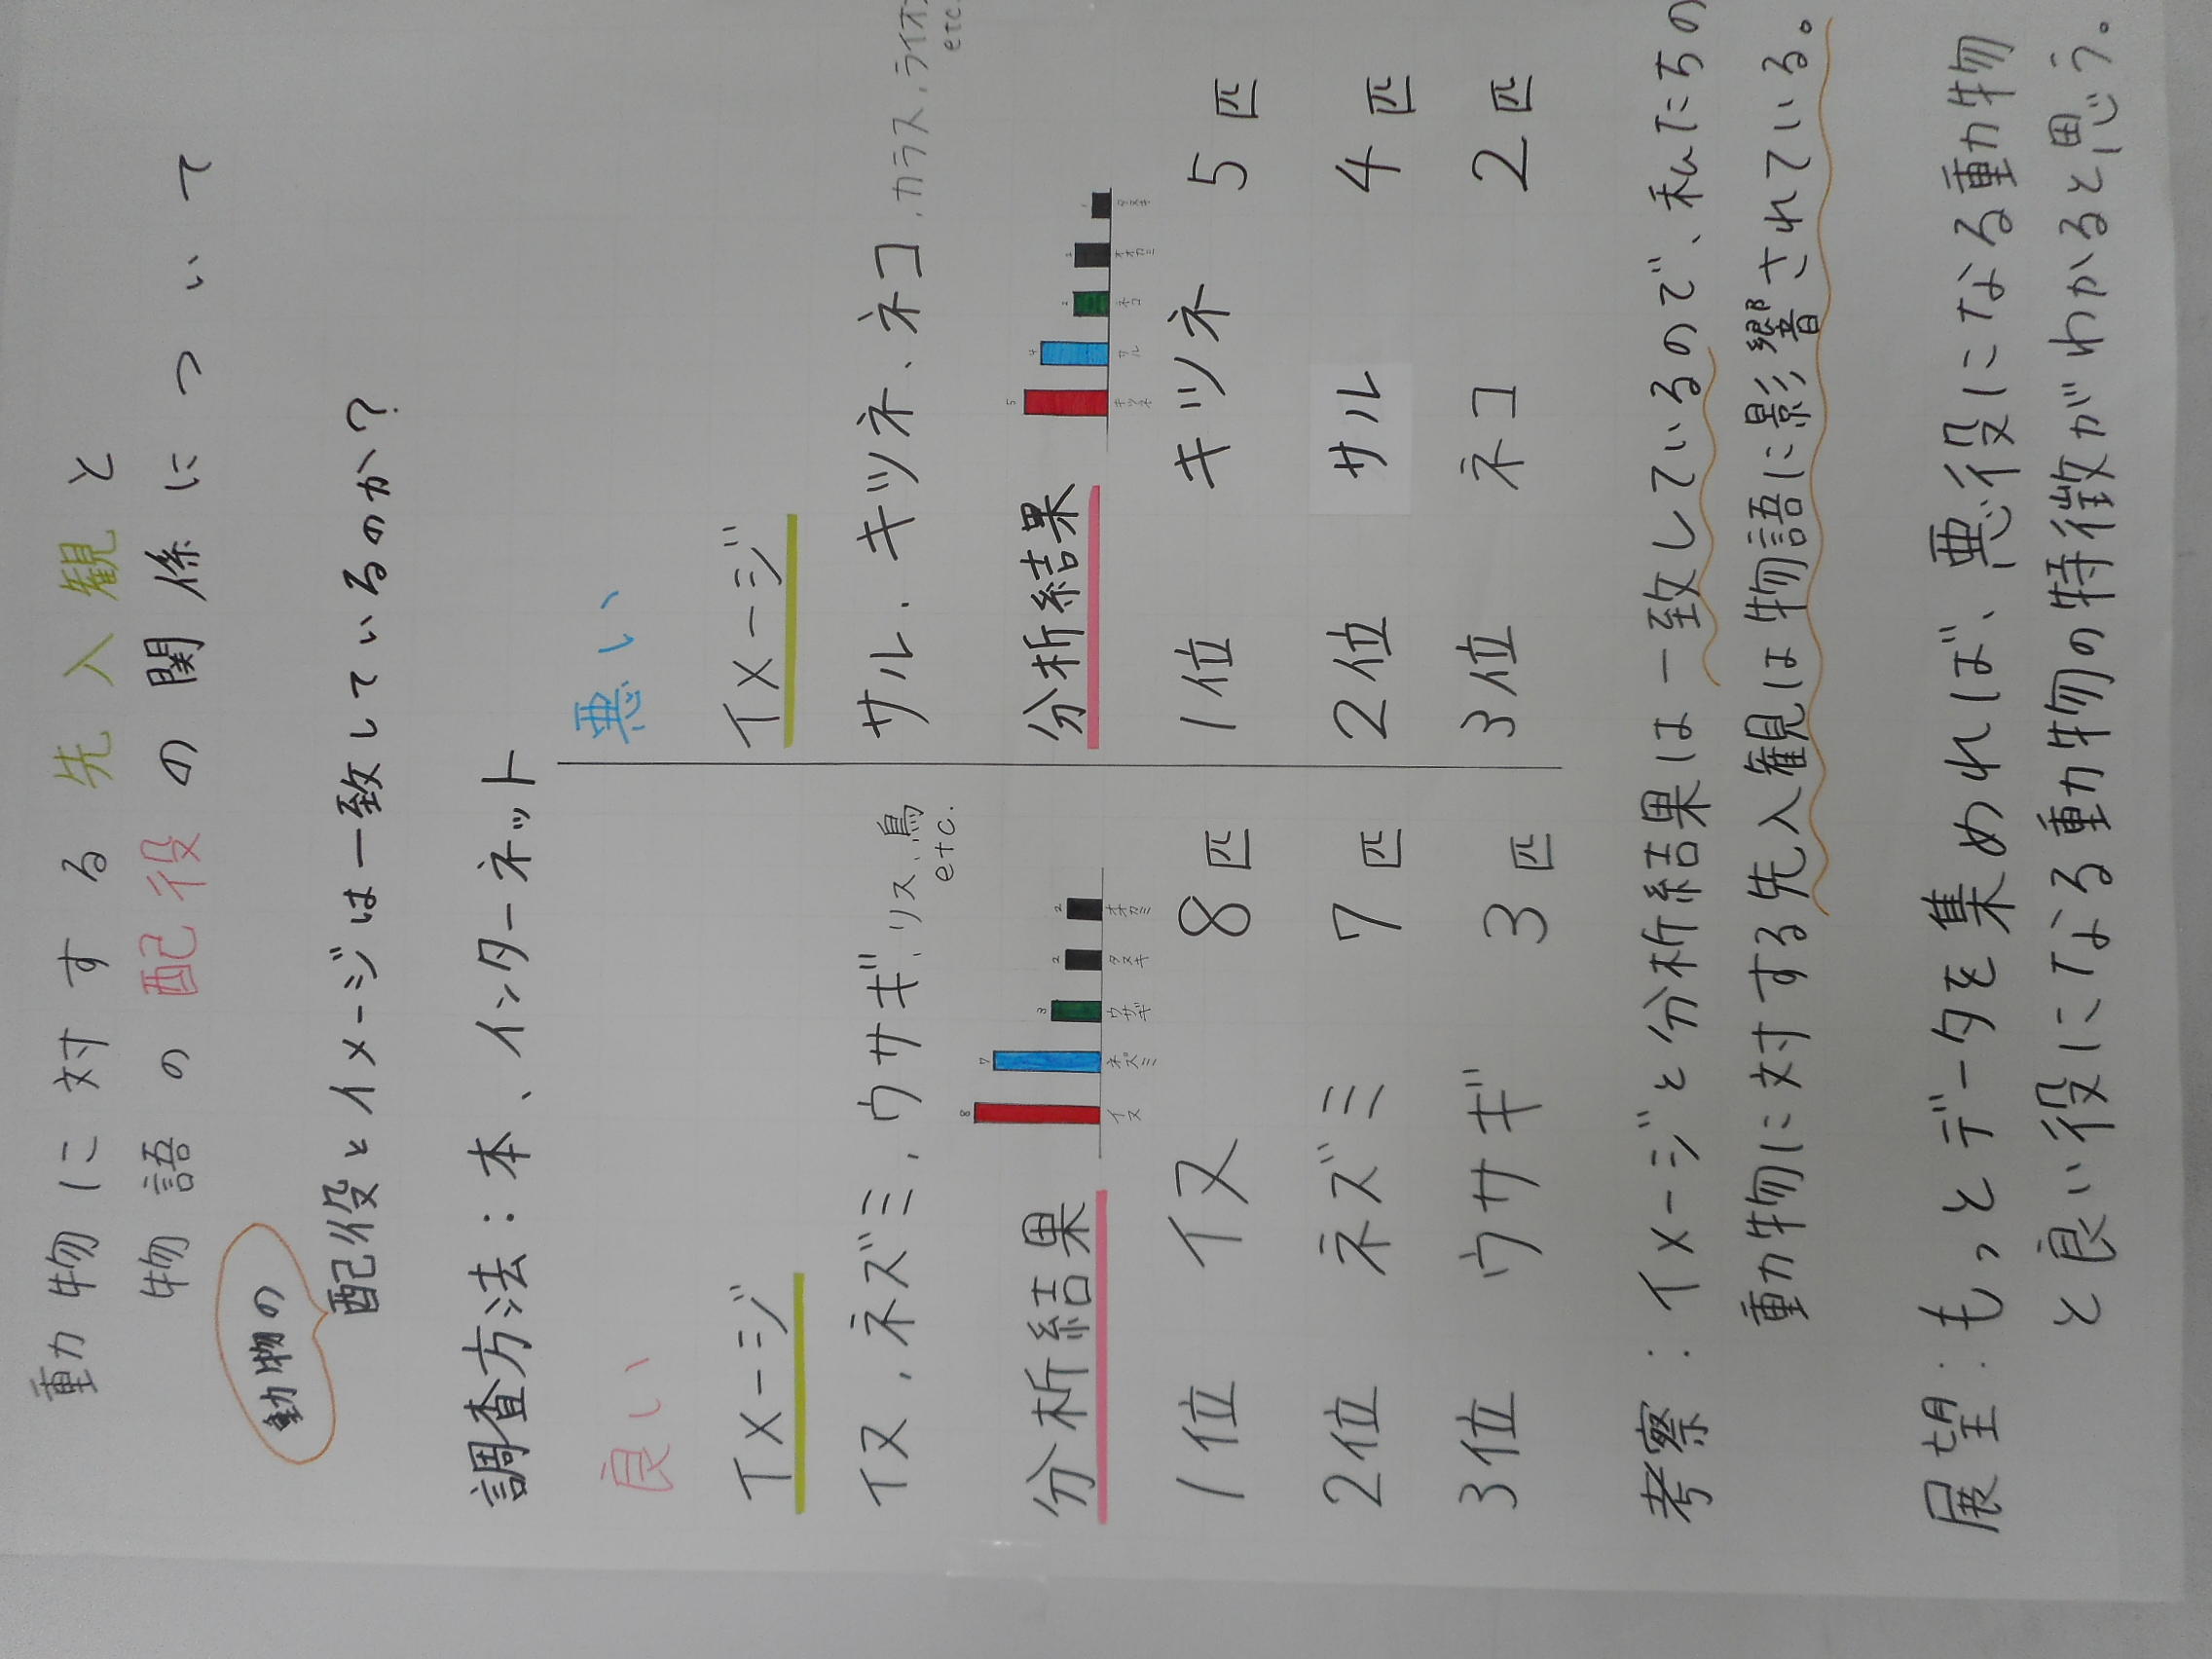 動物に対する先入観と
物語の配役の関係について
動物の
配役とイメージは一致しているのか?
調査方法:本、インターネット
良い
イメージ
イヌ,ネズミ,ウサギ、リス、鳥
etc.
分析結果
8
7
3
2
2
イヌ
ネズミ
ウサギ
タヌキ
オオカミ
1位 イヌ 8匹
2位 ネズミ 7匹
3位 ウサギ 3匹
悪い
イメージ
サル、キツネ、ネコ,カラス,ライオ
etc.
分析結果
5
4
2
2
1
キツネ
サル
ネコ
オオカミ
タヌキ
1位 キツネ 5匹
2位 サル 4匹
3位 ネコ 2匹
考察:イメージと分析結果は一致しているので、私たちの
動物に対する先入観は物語に影響されている。
展望:もっとデータを集めれば、悪役になる動物
と良い役になる動物の特徴がわかると思う。